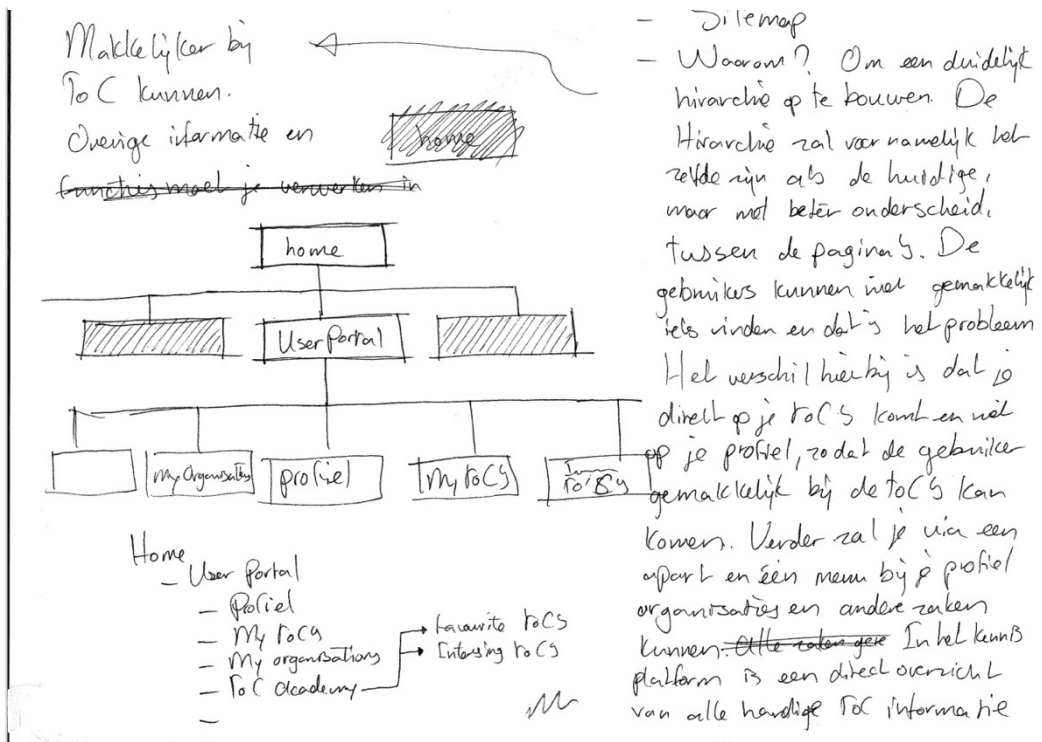 Makkelijker bij
ToC kunnen.
Overige informatie en
functies moet je verwerken in
home
home
User Portal
My Organisations
profiel
My ToCs
Home
- User Portal
- Profiel
- My ToCs
- My organisations
- ToC academy
-
Favourite ToCS
Intersing ToCS
- Sitemap
- Waarom? Om een duidelijk
hirarchie op te bouwen. De
Hirarchie zal voornamelijk het
zelfde zijn als de huidige,
maar met beter onderscheid,
tussen de pagina's. De
gebruikers kunnen niet gemakkelijk
iets vinden en dat is het probleem
Het verschil hierbij is dat je
direct op je ToCS komt en niet
op je profiel, zodat de gebruiker
gemakkelijk bij de ToC's kan
komen. Verder zal je via een
apart en één menu bij je profiel
organisaties en andere zaken
kunnen. Alle zaken In het kennis
platform is een direct overzicht
van alle handige ToC informatie